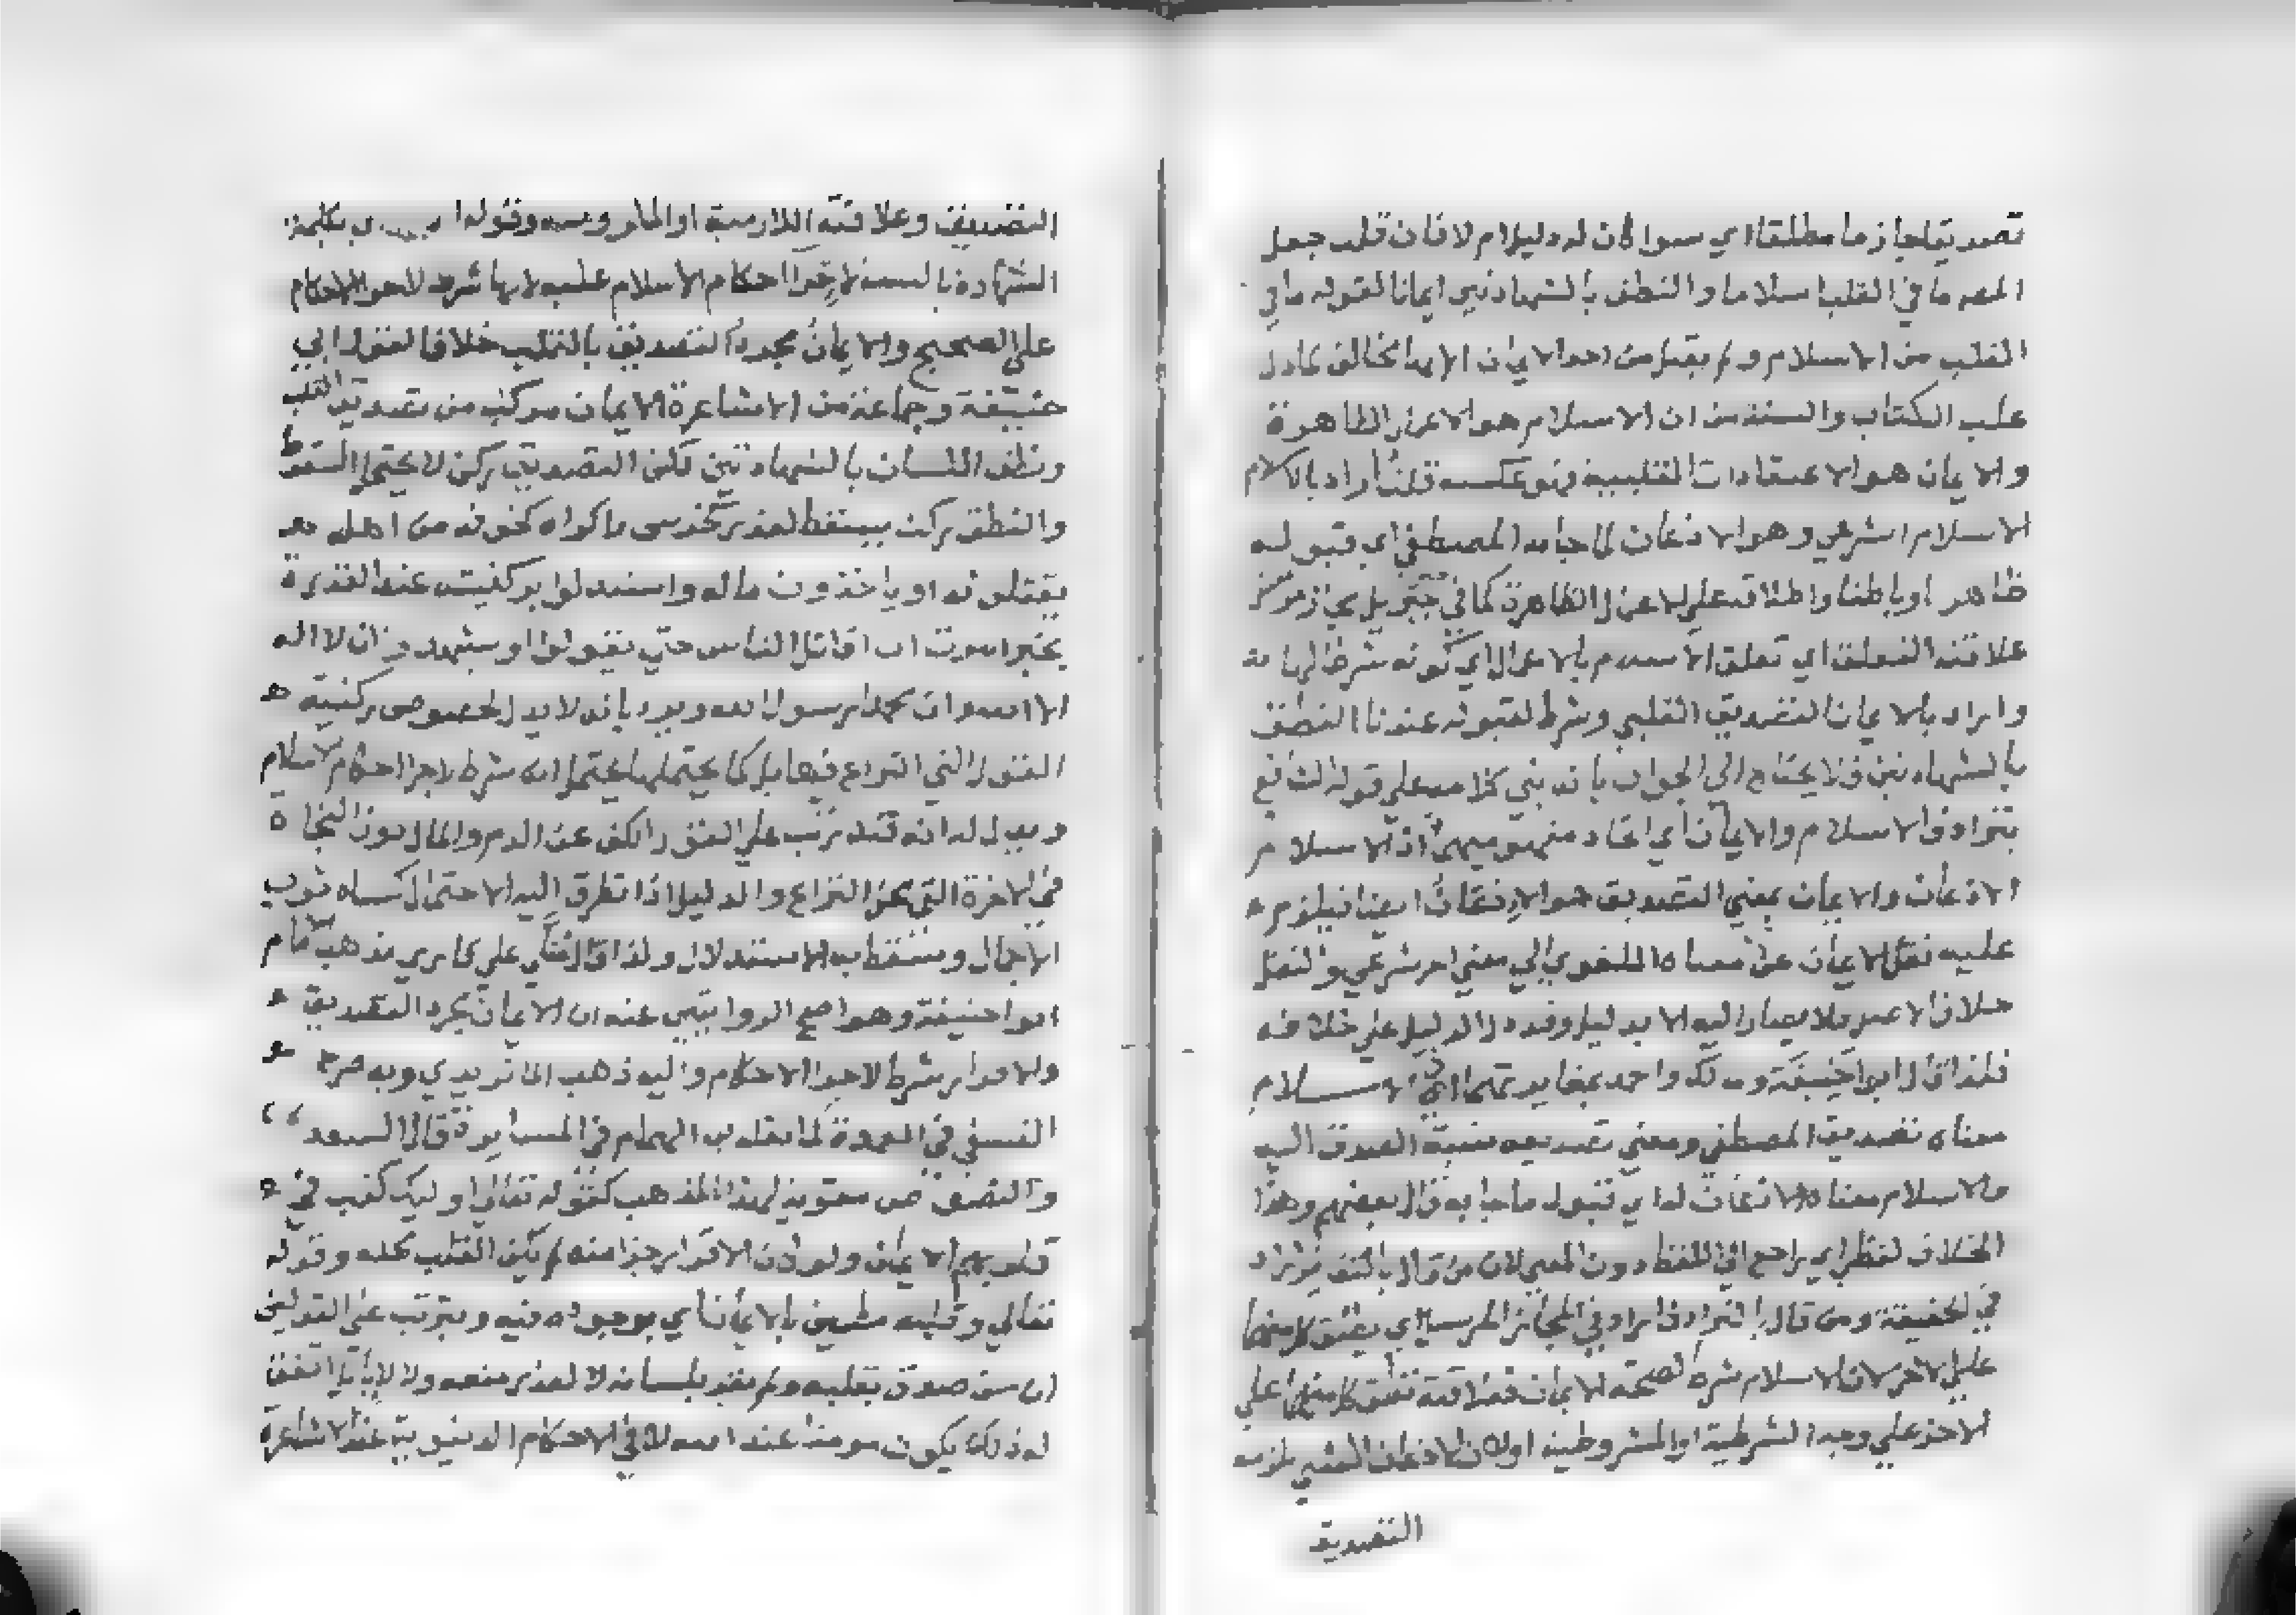 تصديقا جازما مطلقا اي سوا كان له دليل ام لا فان قلت جعل
المص ما في القلب اسلاما والنطق بالشهادتين ايمانا لقوله ما في
القلب من الاسلام ولم يقبل من احد الايمان الا بها مخالف لما دل
عليه الكتاب والسنة من ان الاسلام هو الاعمال الظاهرة
والايمان هو الاعتقادات القلبية فهو عكسه قلنا اراد بالاسلام
الاسلام الشرعي وهو الاذعان لما جا به المصطفي اي قبوله
ظاهرا وباطنا واطلاقه علي الاعمال الظاهرة كما في جبريل مجاز مرسل
علاقته التعلق اي تعلق الاسلام بالاعمال اي كونه شرطا لها
واراد بالايمان التصديق القلبي وشرط لقبوله عندنا النطق
بالشهادتين فلا يحتاج الى الجواب بانه بني كلامه علي قوله الشافع
بترادف الاسلام والايمان اي اتحاد مفهوميهما اذ الاسلام
الاذعان والايمان بمعني التصديق هو الاذعان ايضا فيلزم
عليه نقل الايمان عن معناه اللغوي الي معني اخر شرعي والنقل
خلاف الاصل فلا يصار اليه الا بدليل وقد دل الدليل علي خلافه
فلذا قال ابو حنيفة ومالك واحمد بتغايرهما اي الاسلام
معناه تصديق المصطفي ومعني تصديقه نسبة الصدق اليه
والاسلام معناه الاذعان له اي قبول ما جا به قال بعضهم وهذا
الخلاف لفظي اي راجع الي اللفظ دون المعني لان من قال بالتغاير اراد
في الحقيقة ومن قال بالترادف اراد في المجاز المرسل اي يطلق كل منهما
علي الاخر لان الاسلام شرط لصحة الايمان فعلاقته تعلق كل منهما علي
الاخر علي وجه الشرطية او المشروطية اولان الاذعان للشي يلزمه
التصديق
التصديق وعلاقته اللازمية او الملزومية وقوله بكلمة
الشهادة بالسنة لاجرا احكام الاسلام عليه لانها شرط لاجرا الاحكام
علي الصحيح والايمان مجرد التصديق بالقلب خلافا لقول ابي
حنيفة وجماعة من الاشاعرة الايمان مركب من تصديق القلب
ونطق اللسان بالشهادتين لكن التصديق ركن لا يحتمل السقوط
والنطق ركن يسقط لعذر كخرس واكراه كخوفه من اهله
يقتلونه او ياخذون ماله واستدلوا بركنيته عند القدرة
بخبر امرت ان اقاتل الناس حتي يقولوا او يشهدوا ان لا اله
الا الله وان محمدا رسول الله ويرد بانه لا يدل لخصوص ركنيته
القول التي النزاع فيها بل كما يحتملها يحتمل انه شرط لاجرا احكام الاسلام
ويدل له انه قد رتب علي القول الكف عن الدم والمال دون النجاة
في الاخرة التي محل النزاع والدليل اذا تطرق اليه الاحتمال كساه ثوب
الاجمال وسقط به الاستدلال ولذا قال المتاني علي ما يري مذهب الامام
ابو حنيفة وهو اصح الروايتين عنه ان الايمان مجرد التصديق
والاقرار شرط لاجرا الاحكام واليه ذهب الماتريدي وبه صرح
النسفي في العمدة كما نقله ابن الهمام في المسايرة قال السعد
والنصوص معوية لهذا المذهب كقوله تعالي اوليك كتب في
قلوبهم الايمان ولو كان الاقرار جزا منه لم يكن القلب محله وقوله
تعالي وقلبه مطمين بالايمان اي بوجوده فيه ويترتب علي القولين
ان من صدق بقلبه ولم يقر بلسانه لا لعذر منعه ولا لاباء بل اتفق
له ذلك يكون مومنا عند الله لا في الاحكام الدنيوية عند الاشاعرة